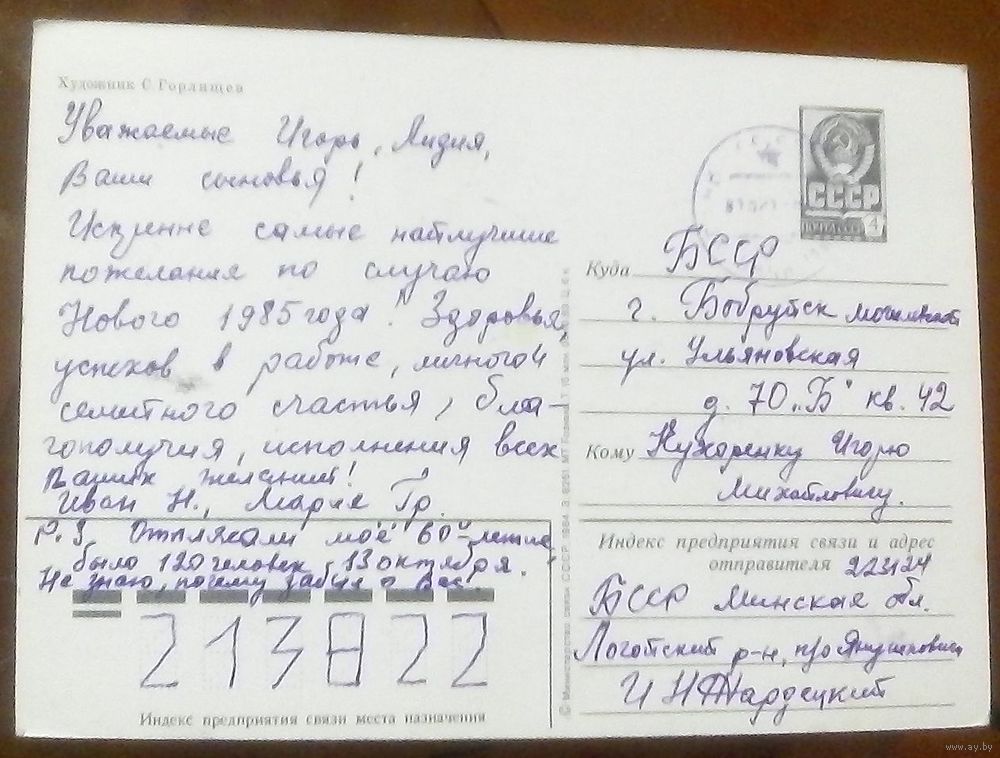 Художник С Горлищев
Уважаемые Игорь, Лидия,
Ваши сыновья!
Искренне самые наилучшие
пожелания по случаю
Нового 1985 года! Здоровья,
успехов в работе, личного и
семейного счастья, бла-
гополучия, исполнения всех
Ваших желаний!
Иван Н., Мария Гр.
P.S. Отплясали моё 60-летие,
было 120 человек, 13 октября.
Не знаю, почему забыл о Вас.
213822
Индекс предприятия связи места назначения
СССР
4
Куда БССР
г. Бобруйск могилевской
ул. Ульяновская
д. 70 „Б" кв. 42
Кому Кухаренку Игорю
Михайловичу.
Индекс предприятия связи и адрес
отправителя 223124
БССР Минская обл.
Логойский р-н, п/о Янушковичи
И Н Жардецкий
www.ay.by